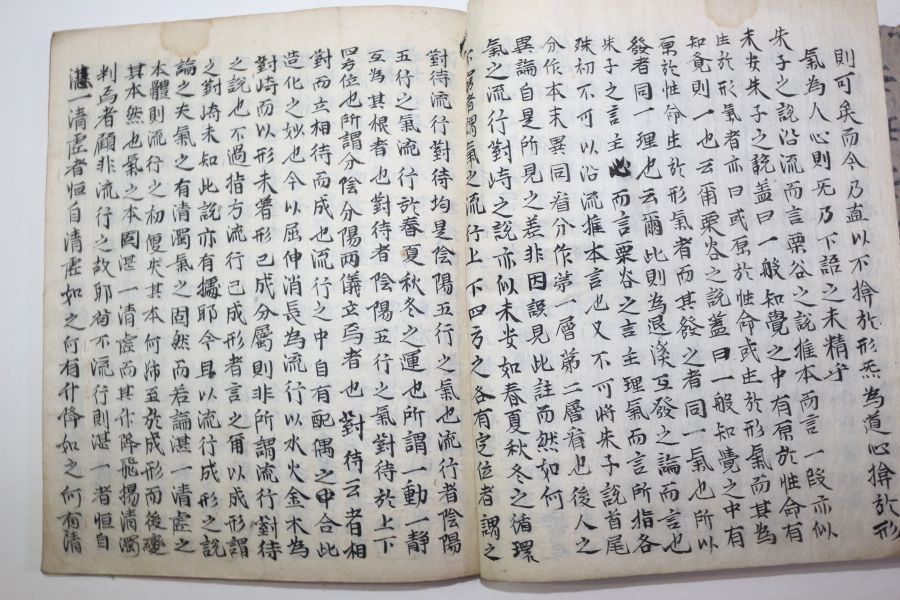 則可矣而今乃直以不揜於形炁爲道心揜於形
氣爲人心則旡乃下語之未精乎
朱子之說沿流而言栗谷之說推本而言一段亦似
未安朱子之說盖曰一般知覺之中有原於性命有
生於形氣者亦曰或原於性命或生於形氣而其爲
知覺則一也云爾栗谷之說盖曰一般知覺之中有
原於性命生於形氣者而其發之者同一氣也所以
發者同一理也云爾此則爲退溪互發之論而言也
朱子之言主心而言栗谷之言主理氣而言所指各
殊初不可以沿流推本言也又不可將朱子說首尾
分作本末異同看分作第一層第二層看也後人之
異論自是所見之差非因誤見此註而然如何
氣之流行對峙之說亦似未安如春夏秋冬之循環
不窮者謂氣之流行上下四方之各有定位者謂之
對待流行對待均是陰陽五行之氣也流行者陰陽
五行之氣流行於春夏秋冬之運也所謂一動一靜
互爲其根者也對待者陰陽五行之氣對待於上下
四方位也所謂分陰分陽兩儀立焉者也對待云者相
對而立相待而成也流行之中自有配偶之中合此
造化之妙也今以屈伸消長爲流行以水火金木爲
對峙而以形未著形已成分屬則非所謂流行對待
之說也不過指方流行已成形者言之爾以成形謂
之對峙未知此說亦有據耶今且以流行成形之說
論之夫氣之有清濁氣之固然而若論湛一清虛之
本體則流行之初便失其本何至於成形而後變
其本然也氣之本固湛一清虛而其升降飛揚清濁
判焉者顧非流行之故耶苟不流行則湛一者恒自
湛一清虛者恒自清虛如之何有升降如之何有清